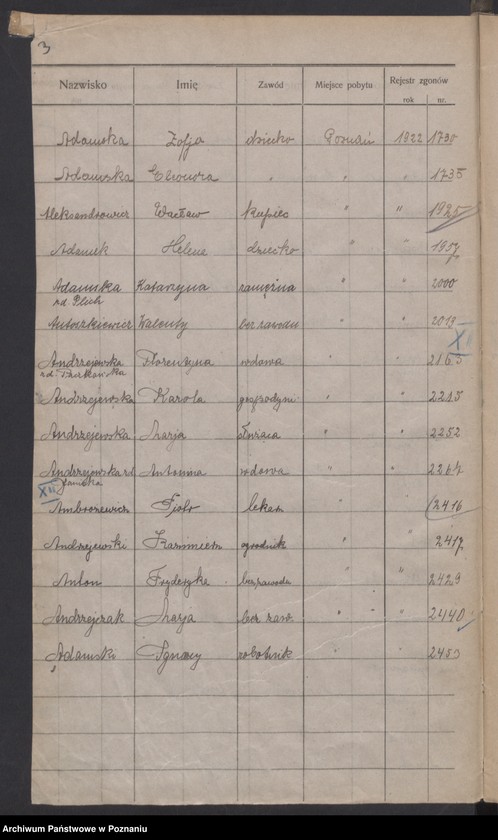 3
Nazwisko Imię Zawód Miejsce pobytu Rejestr zgonów
rok nr.
Adamska Zofja dziecko Poznań 1922 1730
Adamska Eleonora " " " 1735
Aleksandrowicz Wacław kupiec " " 1925
Adamek Helene dziecko " " 1957
Adamska Katarzyna zamężna " " 2000
zd. Plich
Antoszkiewicz Walenty bez zawodu " " 2013
X
Andrzejewska Florentyna wdowa " " 2165
zd.
Andrzejewska Karola gospodyni " " 2215
Andrzejewska Marja służąca " " 2252
Andrzejewska zd. Antonina wdowa " " 2264
XII
Ambrozewicz Piotr lekarz " " 2416
Andrzejewski Kazimierz ogrodnik " " 2417
Anton Fryderyka bez zawodu " " 2429
Andrzejczak Marja bez zaw. " " 2440
Adamski Ignacy robotnik " " 2453
Archiwum Państwowe w Poznaniu